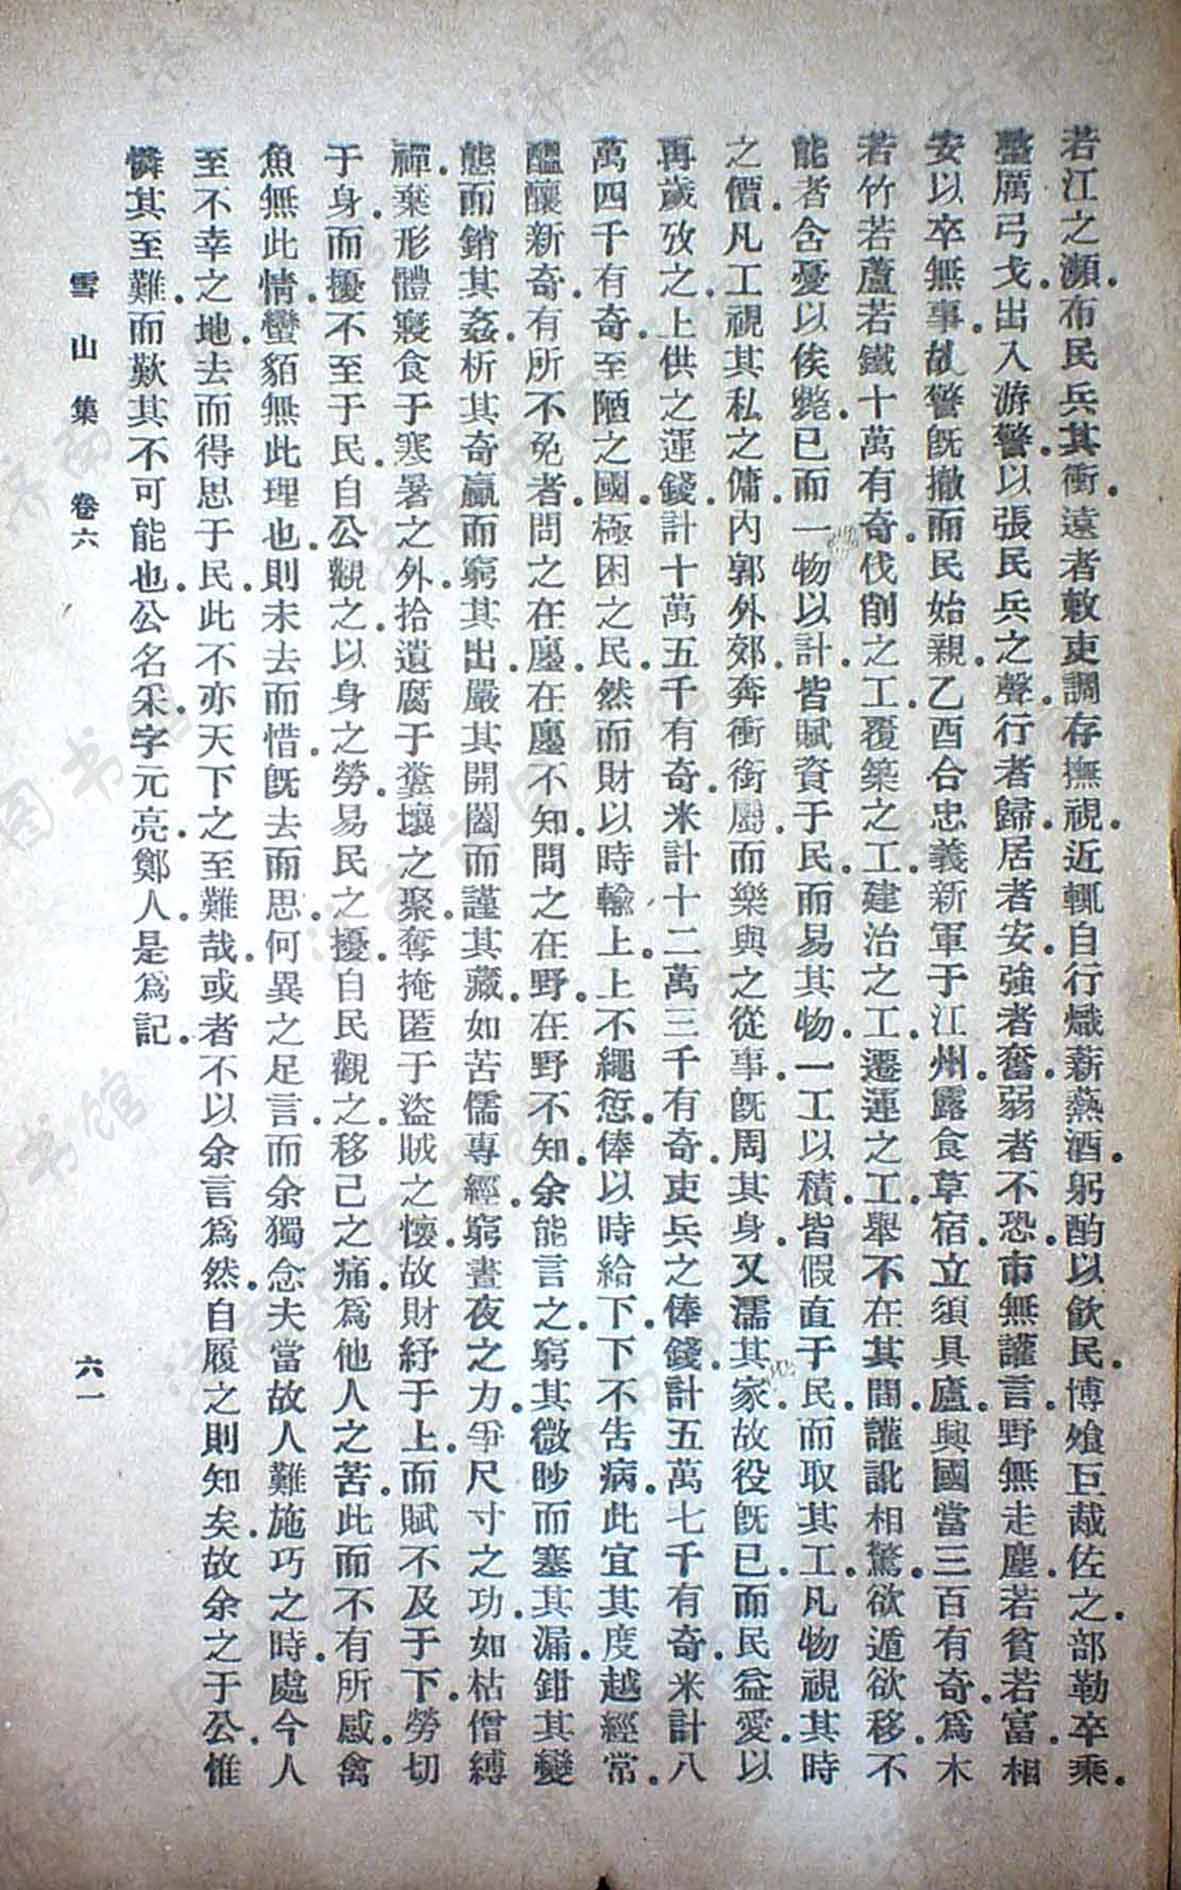 若江之瀕。布民兵其衝。遠者敕吏調存撫視。近輒自行熾薪熱酒。躬酌以飲民。博飧巨胾佐之。部勒卒乘。
鏧厲弓戈。出入游警。以張民兵之聲。行者歸。居者安。強者奮。弱者不恐。市無讙言。野無走塵。若貧若富。相
安以卒無事。故警旣撤而民始親。乙酉合忠義新軍于江州。露食草宿。立須具廬。興國當三百有奇。爲木
若竹若蘆若鐵十萬有奇。伐削之工。覆築之工。建治之工。遷運之工。舉不在其間。讙訿相驚。欲遁欲移。不
能者含憂以俟斃。已而一物以計。皆賦資于民而易其物。一工以積。皆假直于民。而取其工。凡物視其時
之價。凡工視其私之傭。內郭外郊。奔衝銜勝而樂與之從事。旣周其身。又濡其家。故役旣已。而民益愛。以
再歲攷之。上供之運錢。計十萬五千有奇。米計十二萬三千有奇。吏兵之俸錢。計五萬七千有奇。米計八
萬四千有奇。至陋之國。極困之民。然而財以時輸上。上不繩愆。俸以時給下。下不告病。此宜其度越經常。
醞釀新奇。有所不免者。問之在廛。在廛不知。問之在野。在野不知。余能言之。窮其微眇而塞其漏。鉗其變
態而銷其姦。析其奇贏而窮其出。嚴其開闔而謹其藏。如苦儒專經。窮晝夜之力。爭尺寸之功。如枯僧縛
禪。棄形體寢食于寒暑之外。拾遺腐于糞壤之聚。奪掩匿于盜賊之懷。故財紓于上。而賦不及于下。勞切
于身。而擾不至于民。自公觀之。以身之勞。易民之擾。自民觀之。移己之痛。爲他人之苦。此而不有所感。禽
魚無此情。蠻貊無此理也。則未去而惜。旣去而思。何異之足言。而余獨念夫當故人難施巧之時。處今人
至不幸之地。去而得思于民。此不亦天下之至難哉。或者不以余言爲然。自履之則知矣。故余之于公。惟
憐其至難。而歎其不可能也。公名采。字元亮。鄭人。是爲記。
雪山集 卷六 六一